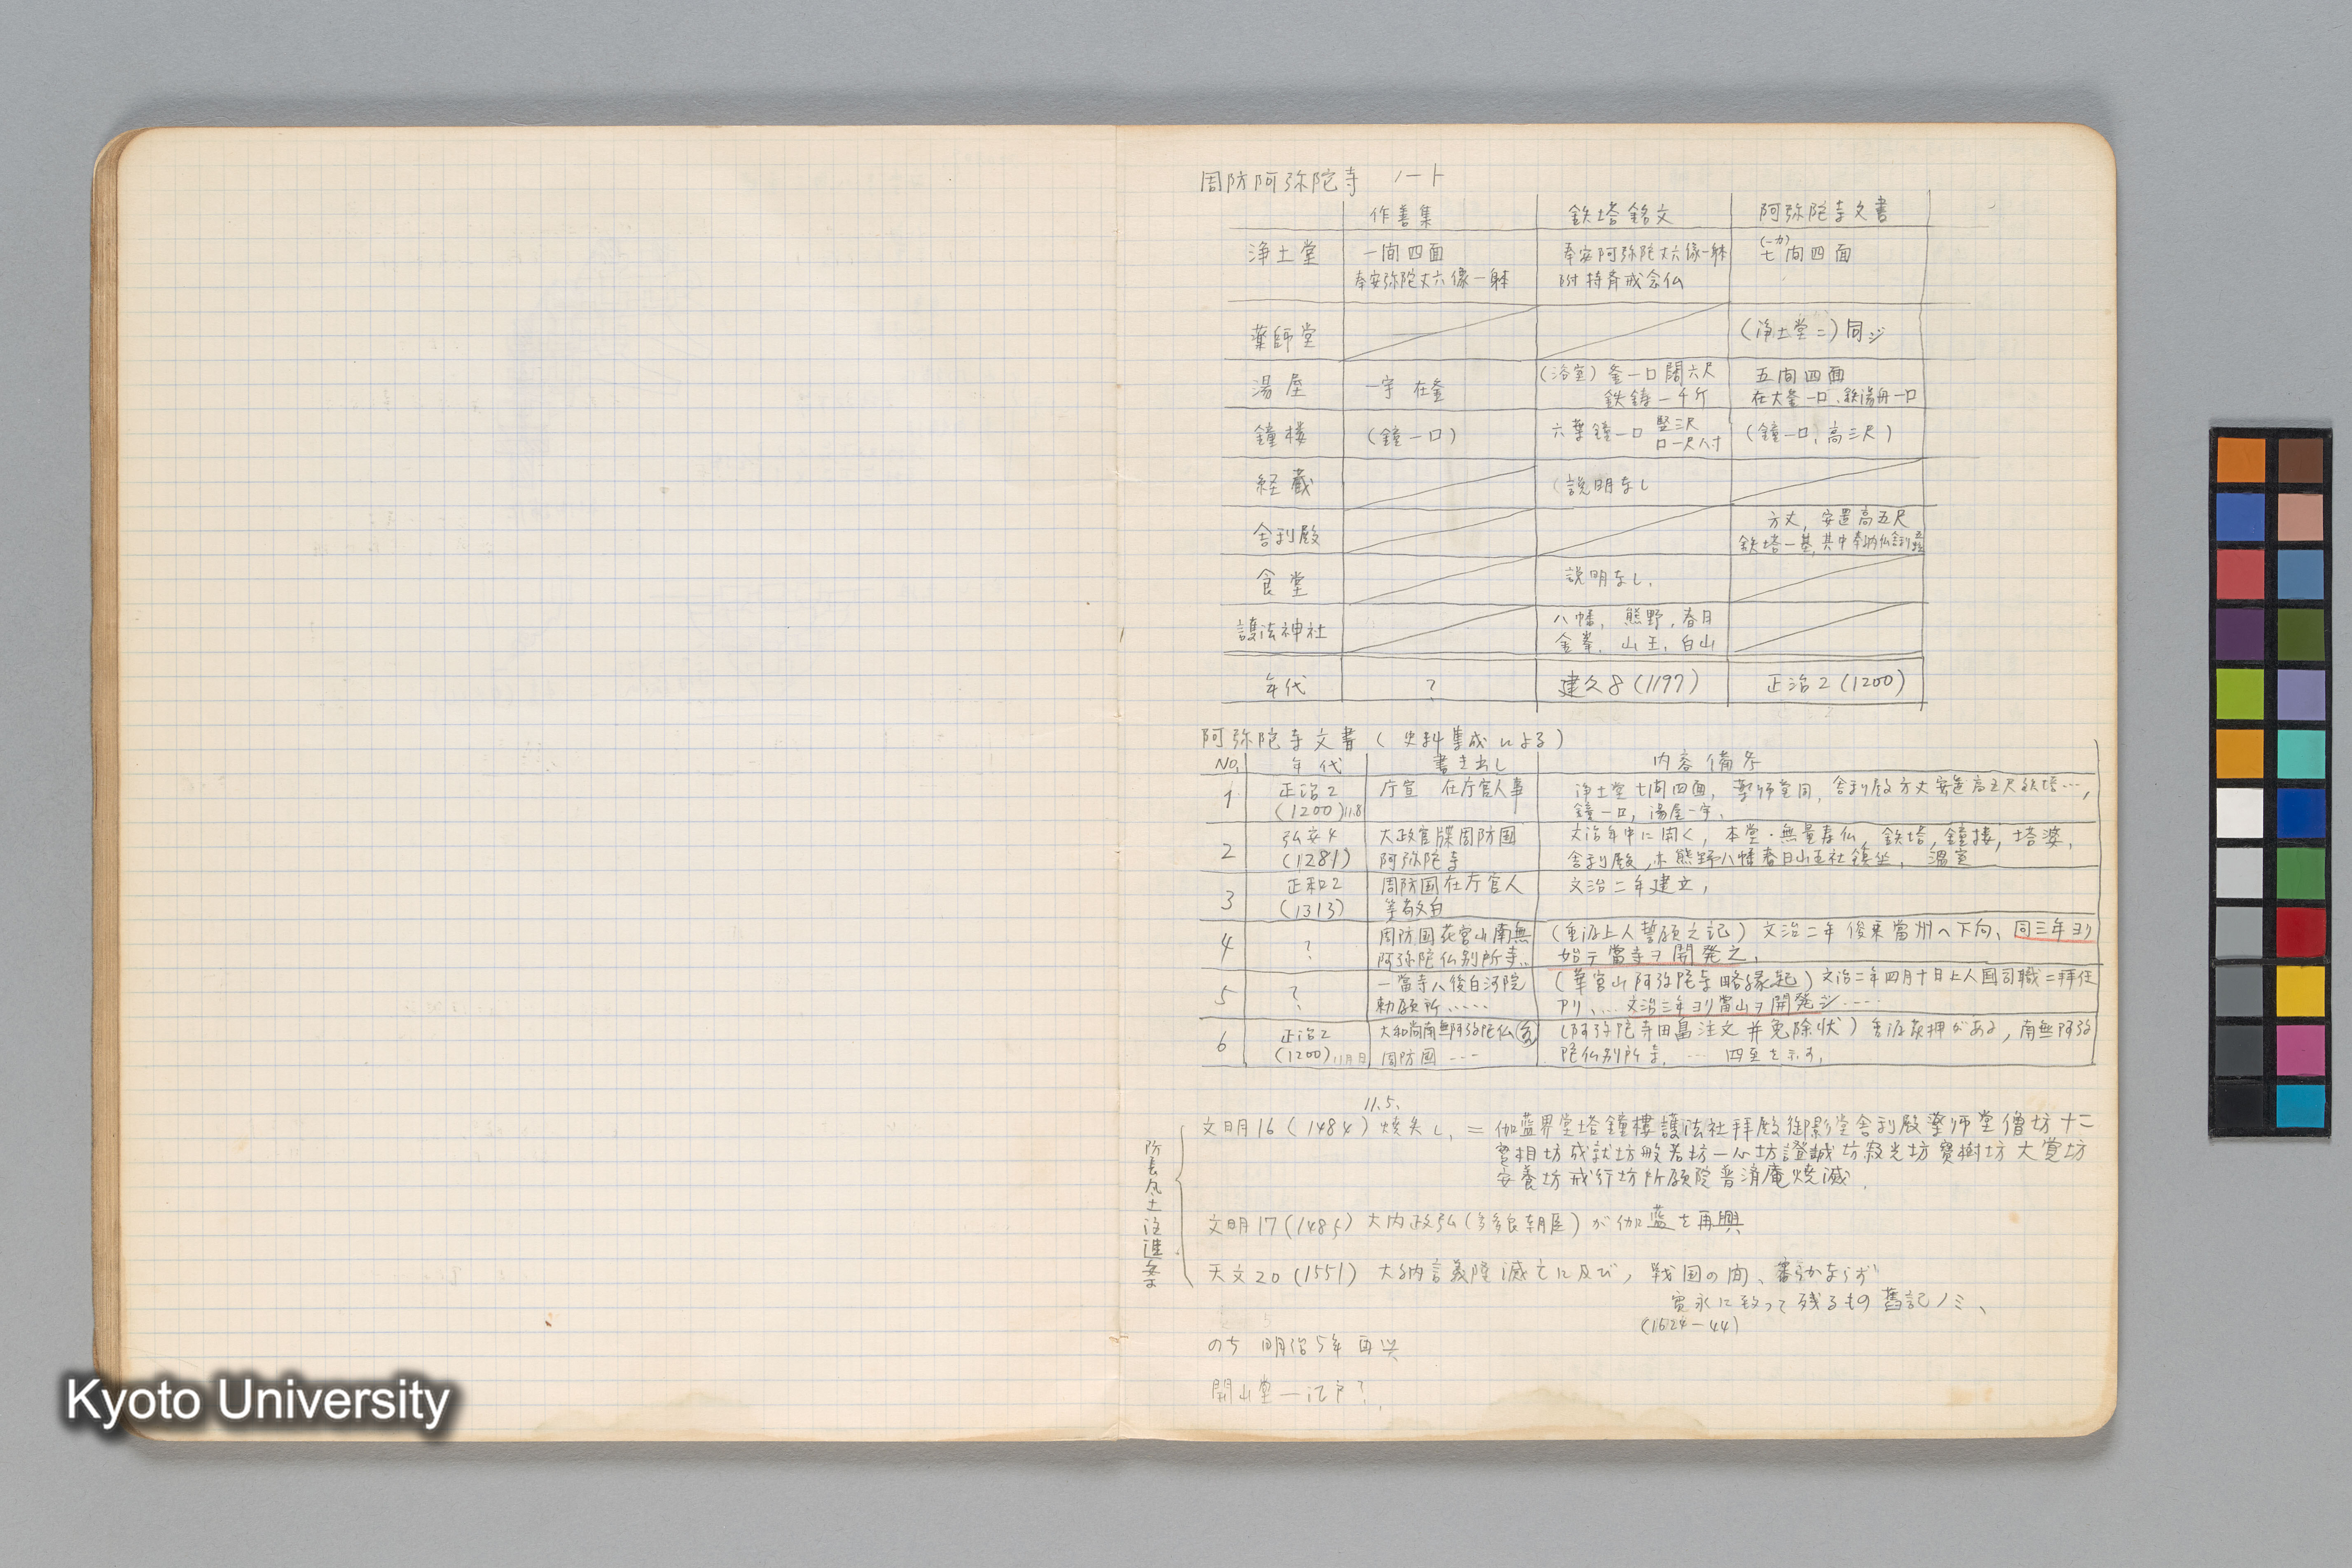 周防阿弥陀寺 ノート
作善集 鉄塔銘文 阿弥陀寺文書
浄土堂 一間四面 奉安阿弥陀丈六像一躰 (一カ)七間四面
奉安弥陀丈六像一躰 附持斉戒念仏
薬師堂 (浄土堂ニ)同ジ
湯屋 一宇 在釜 (浴室) 釜一口 闊六尺 五間四面
鉄鋳一千斤 在大釜一口、鉄湯舟一口
鐘楼 (鐘一口) 六葉鐘一口 竪三尺 口一尺八寸 (鐘一口、高三尺)
経蔵 (説明なし
舎利殿 方丈, 安置高五尺
鉄塔一基, 其中奉納仏舎利
食堂 説明なし.
護法神社 八幡, 熊野, 春日
金峯, 山王, 白山
年代 ? 建久8(1197) 正治2(1200)
阿弥陀寺文書 ( 史料集成による)
No. 年代 書き出し 内容備考
1 正治2 庁宣 在庁官人事 浄土堂七間四面, 薬師堂同, 舎利殿方丈安置高五尺鉄塔…,
(1200)11.8 鐘一口, 湯屋一宇.
2 弘安4 大政官牒周防国 文治年中に開く, 本堂・無量寿仏, 鉄塔, 鐘楼, 塔婆,
(1281) 阿弥陀寺 舎利殿, 亦熊野八幡春日山王社鎮坐, 温室
3 正和2 周防国在庁官人 文治二年建立,
(1313) 等敬白
4 ? 周防国花宮山南無 (重源上人誓願之記) 文治二年 俊乗當州へ下向、同三年ヨリ
? 阿弥陀仏別所寺.. 始テ當寺ヲ開発之.
5 ? 一當寺ハ後白河院 (華宮山阿弥陀寺略縁起) 文治二年四月十日上人国司職ニ拝任
? 勅願所 ..... アリ、... 文治三年ヨリ當山ヲ開発シ ....
6 正治2 大和尚南無阿弥陀仏 (阿弥陀寺田畠注文并免除状) 重源花押がある, 南無阿弥
(1200)11月日 周防国 --- 陀仏別所寺, … 四至を示す,
11.5.
文明16 (1484) 焼失し、= 伽藍界堂塔鐘樓護法社拜殿御影堂舎利殿薬師堂僧坊十二
實相坊成就坊般若坊一心坊證誠坊寂光坊寶樹坊大覚坊
安養坊戒行坊所願院普済庵焼滅.
防長風土注進案
文明17(1485) 大内政弘(多多良朝臣)が伽藍を再興
天文20 (1551) 大納言義隆滅亡に及び, 戦国の間、審らかならず
寛永に致って残るもの舊記ノミ、
(1624-44)
のち 明治5年再興
開山堂―江戸?
Kyoto University